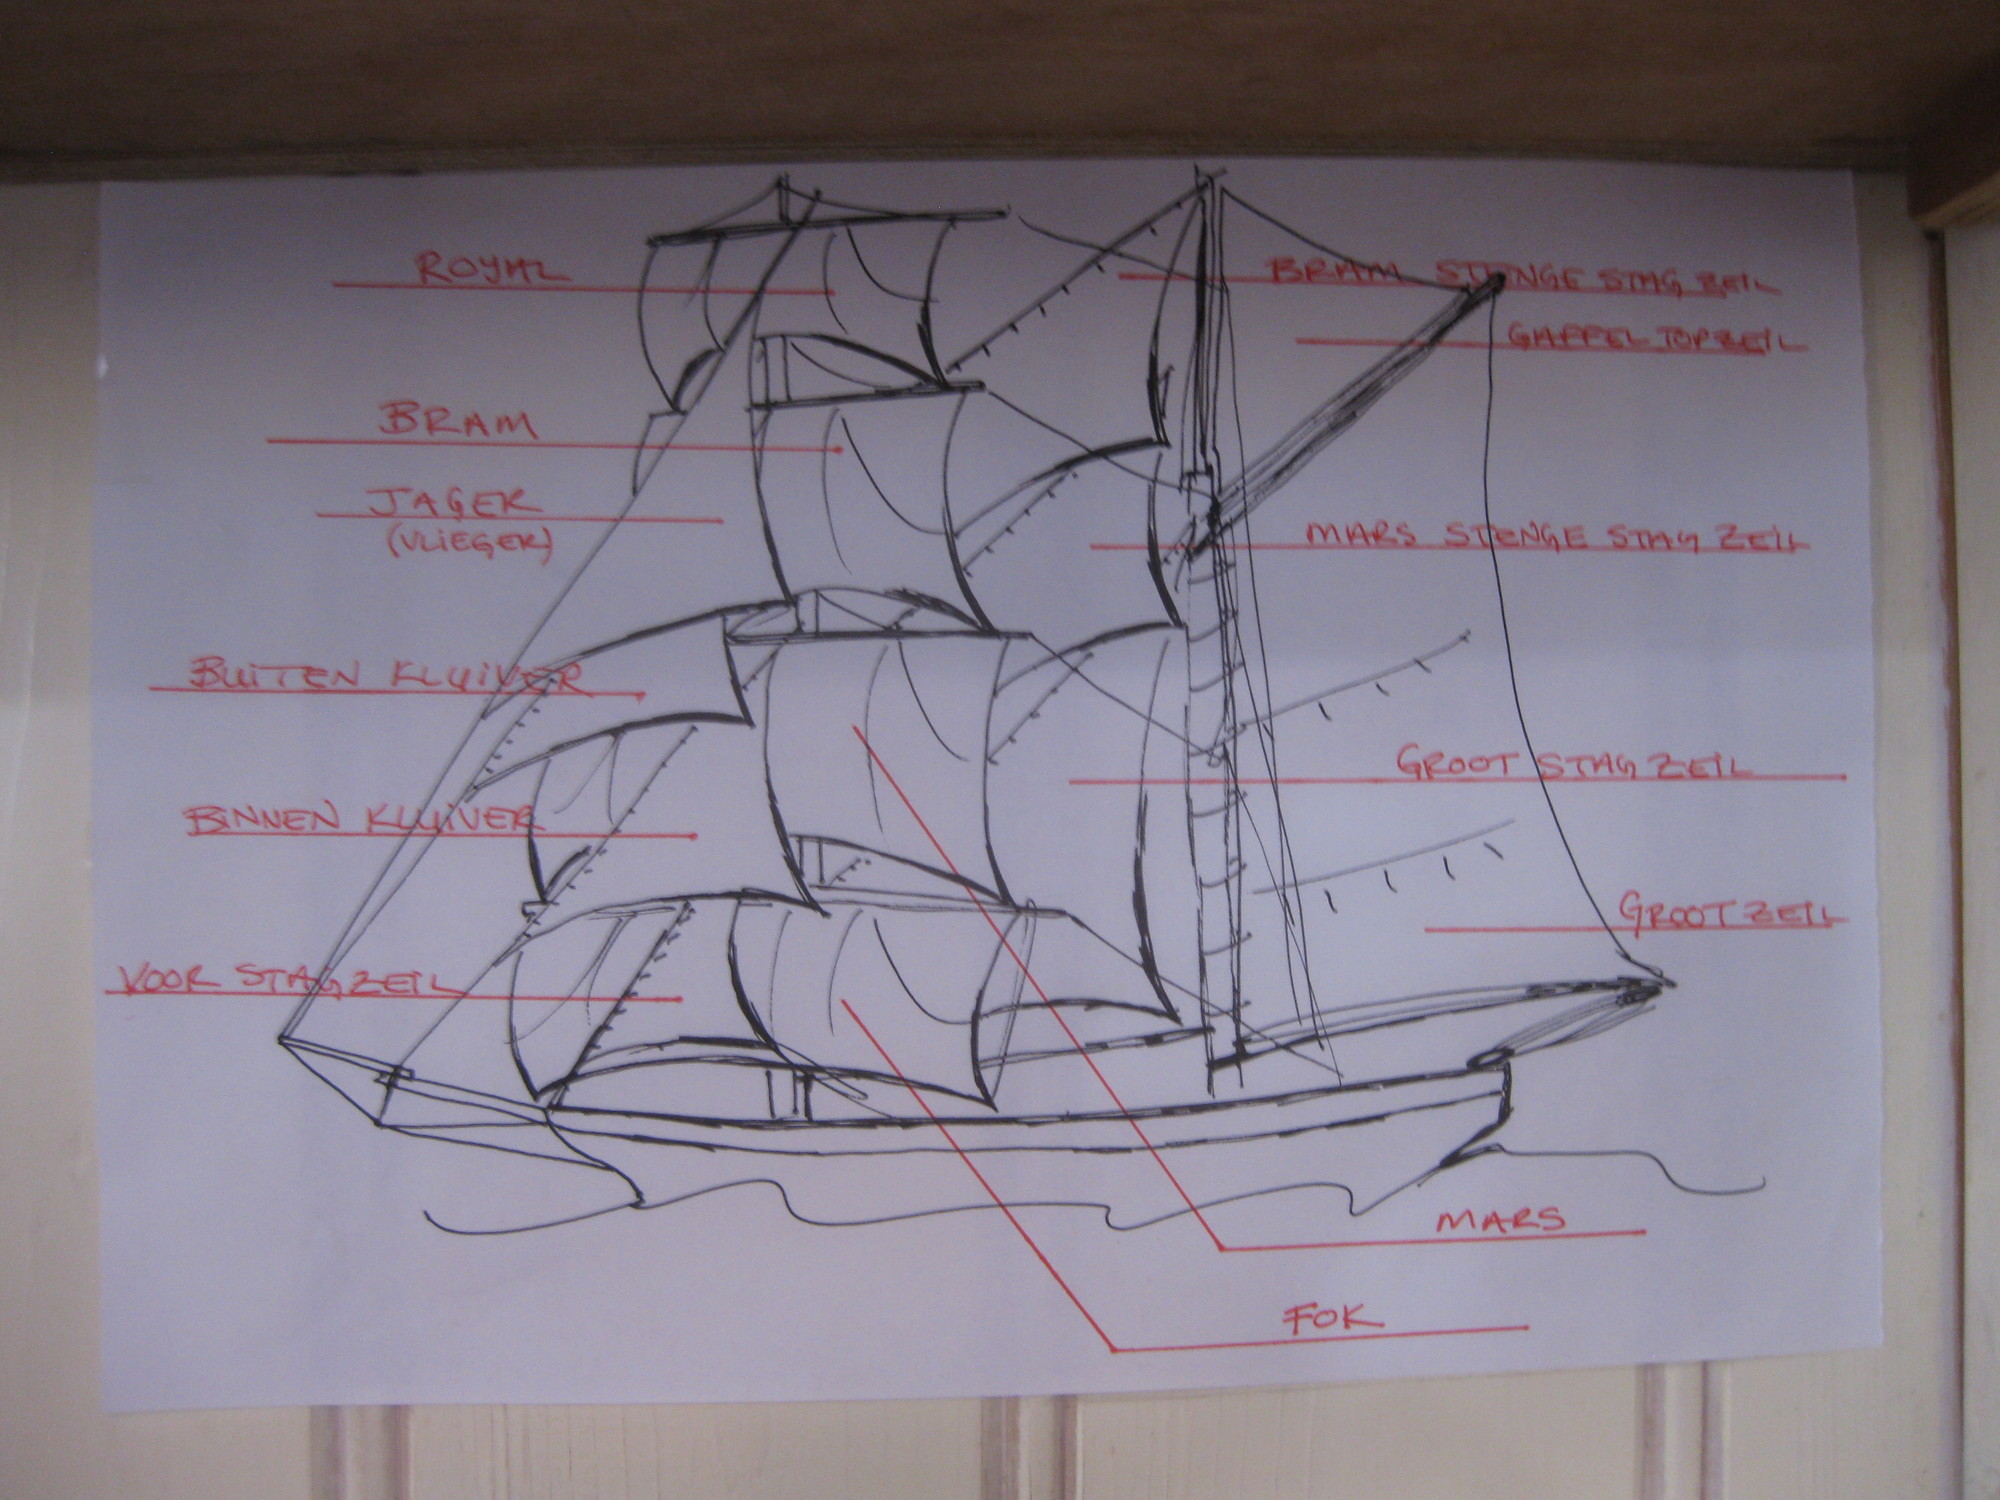 ROYAL
BRAM
JAGER
(VLIEGER)
BUITEN KLUIVER
BINNEN KLUIVER
VOOR STAGZEIL
BRAM STENGE STAG ZEIL
GAFFEL TOPZEIL
MARS STENGE STAG ZEIL
GROOT STAG ZEIL
GROOTZEIL
MARS
FOK